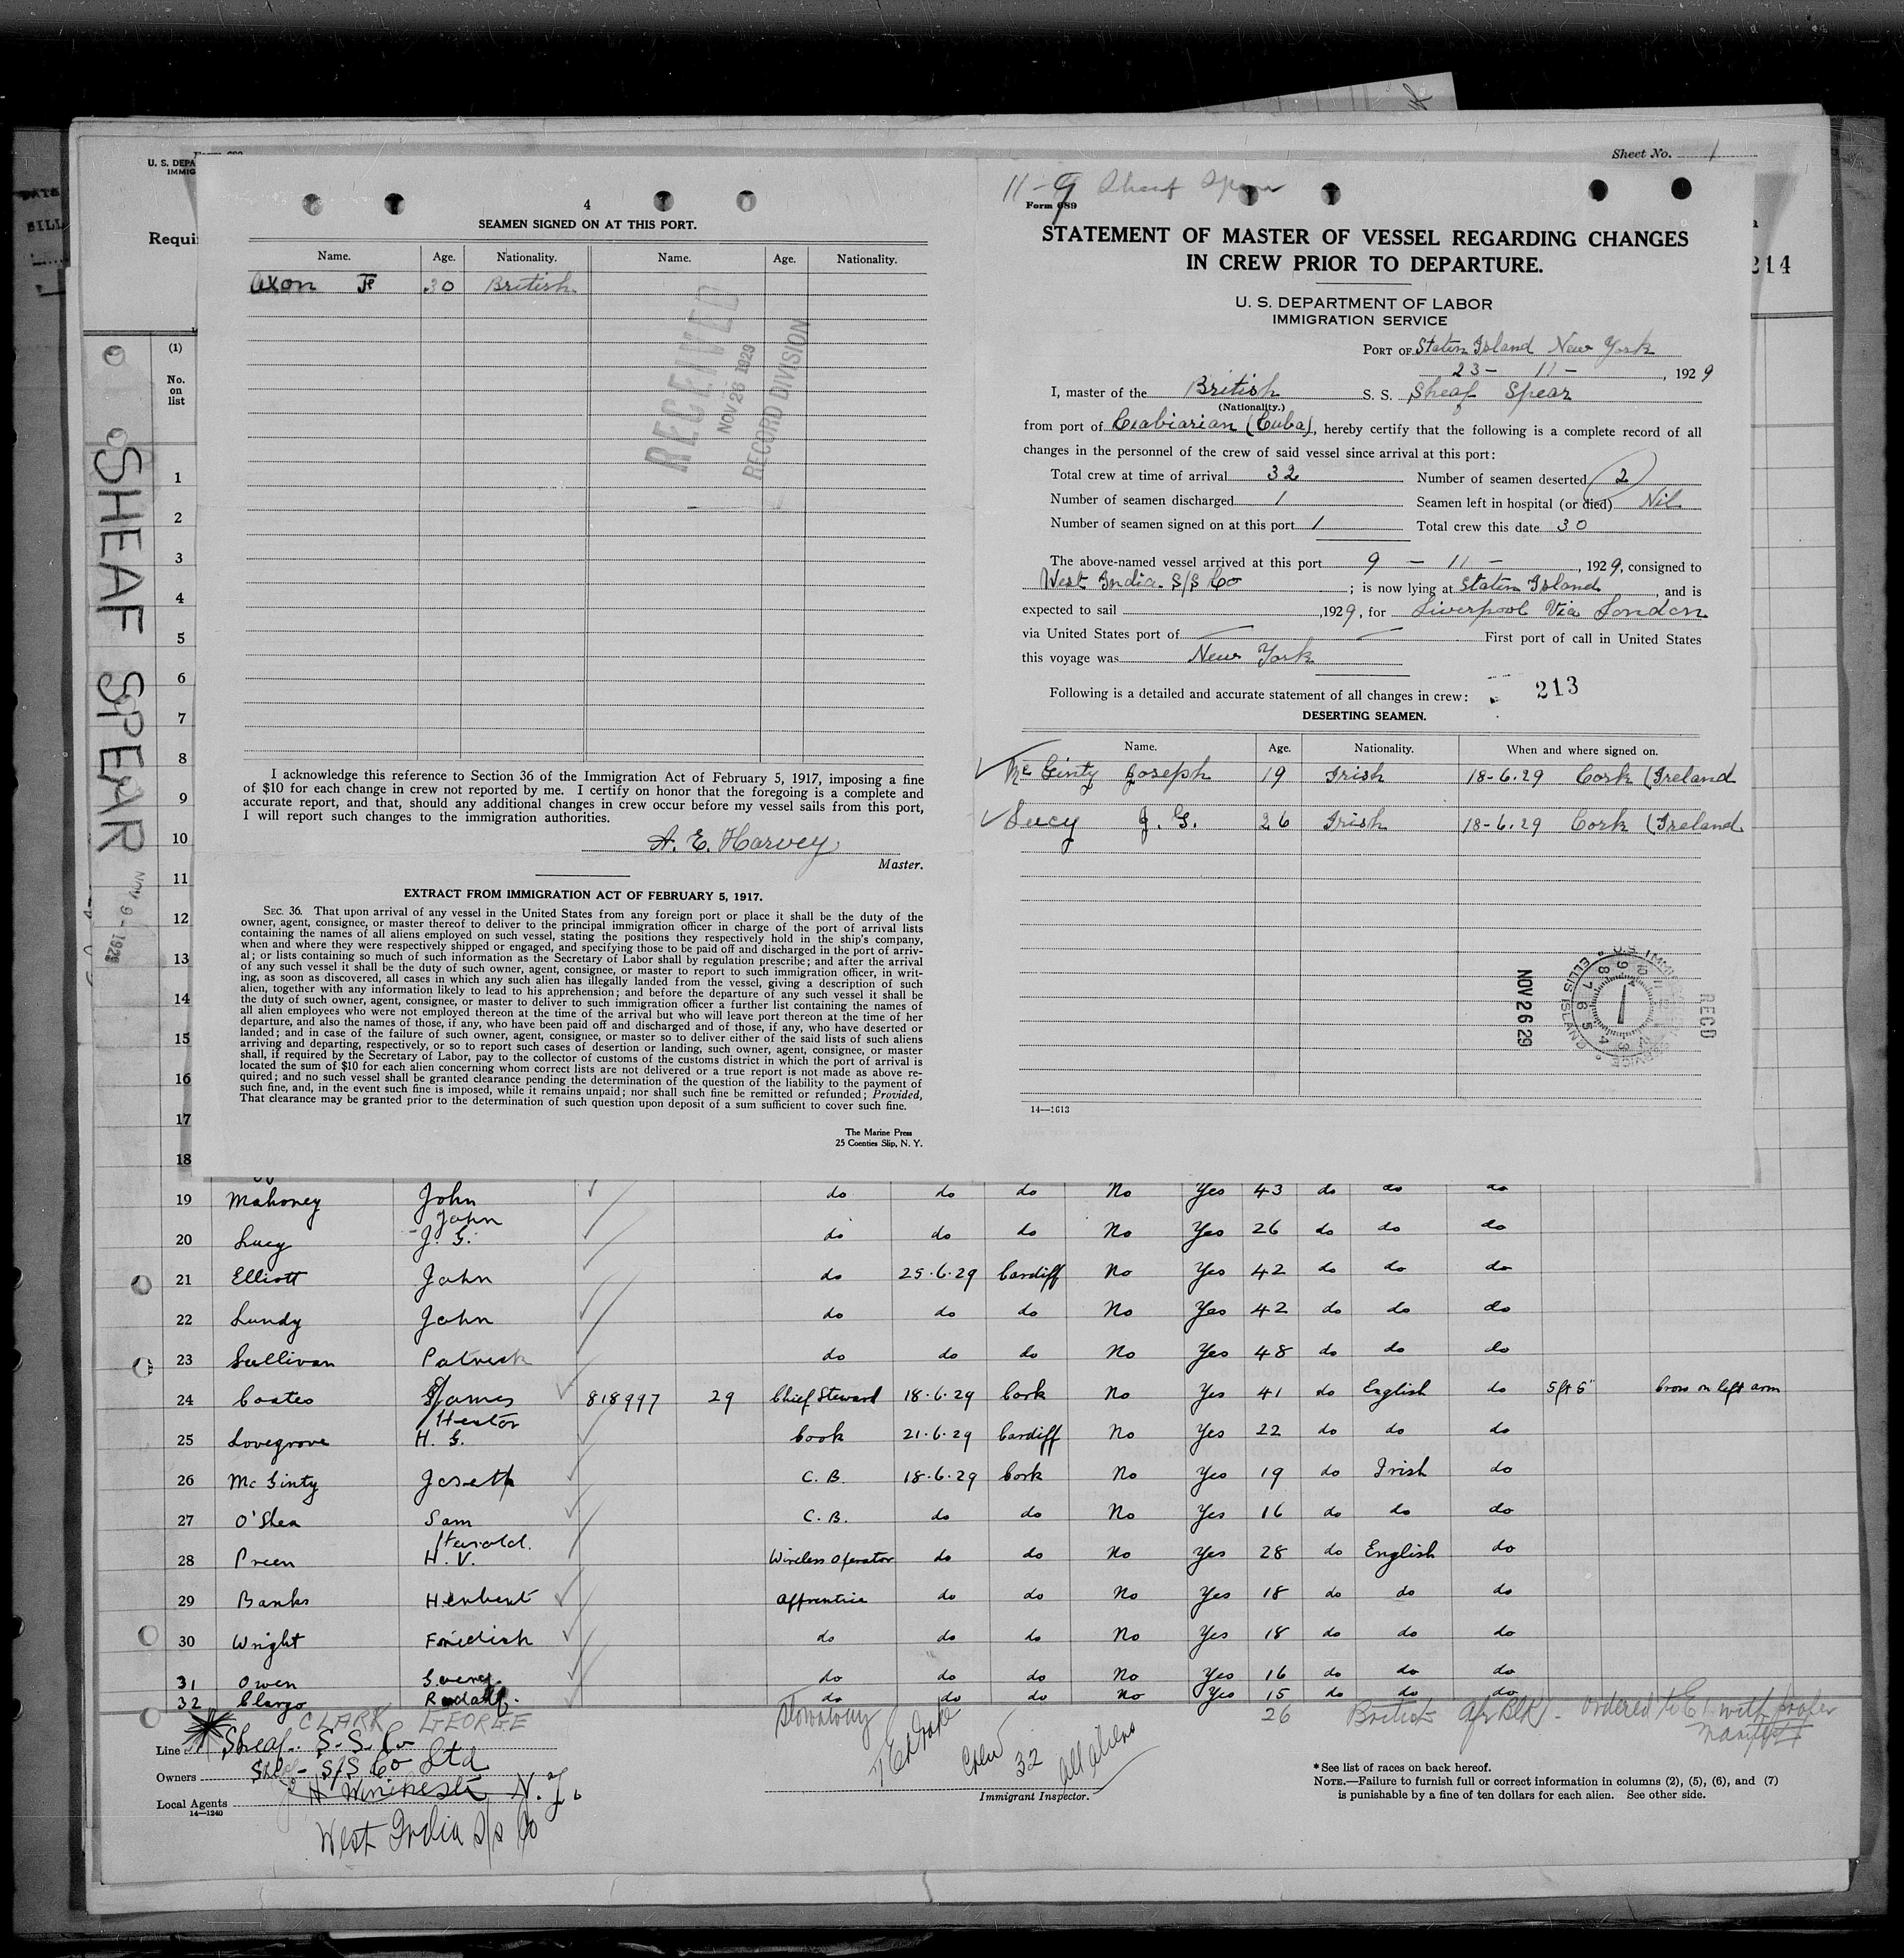 Sheet No. 1
U. S. DEPA
IMMIG
Requi
214
SHEAF SPEAR
NOV 9 - 1929
4
SEAMEN SIGNED ON AT THIS PORT.
Name. Age. Nationality. Name. Age. Nationality.
Axon 30 British
RECEIVED
NOV 26 1929
RECORD DIVISION
I acknowledge this reference to Section 36 of the Immigration Act of February 5, 1917, imposing a fine
of $10 for each change in crew not reported by me. I certify on honor that the foregoing is a complete and
accurate report, and that, should any additional changes in crew occur before my vessel sails from this port,
I will report such changes to the immigration authorities.
A. E. Harvey
Master.
EXTRACT FROM IMMIGRATION ACT OF FEBRUARY 5, 1917.
SEC. 36. That upon arrival of any vessel in the United States from any foreign port or place it shall be the duty of the
owner, agent, consignee, or master thereof to deliver to the principal immigration officer in charge of the port of arrival lists
containing the names of all aliens employed on such vessel, stating the positions they respectively hold in the ship's company,
when and where they were respectively shipped or engaged, and specifying those to be paid off and discharged in the port of arriv-
al; or lists containing so much of such information as the Secretary of Labor shall by regulation prescribe; and after the arrival
of any such vessel it shall be the duty of such owner, agent, consignee, or master to report to such immigration officer, in writ-
ing, as soon as discovered, all cases in which any such alien has illegally landed from the vessel, giving a description of such
alien, together with any information likely to lead to his apprehension; and before the departure of any such vessel it shall be
the duty of such owner, agent, consignee, or master to deliver to such immigration officer a further list containing the names of
all alien employees who were not employed thereon at the time of the arrival but who will leave port thereon at the time of her
departure, and also the names of those, if any, who have been paid off and discharged and of those, if any, who have deserted or
landed; and in case of the failure of such owner, agent, consignee, or master so to deliver either of the said lists of such aliens
arriving and departing, respectively, or so to report such cases of desertion or landing, such owner, agent, consignee, or master
shall, if required by the Secretary of Labor, pay to the collector of customs of the customs district in which the port of arrival is
located the sum of $10 for each alien concerning whom correct lists are not delivered or a true report is not made as above re-
quired; and no such vessel shall be granted clearance pending the determination of the question of the liability to the payment of
such fine, and, in the event such fine is imposed, while it remains unpaid; nor shall such fine be remitted or refunded; Provided,
That clearance may be granted prior to the determination of such question upon deposit of a sum sufficient to cover such fine.
The Marine Press
25 Coenties Slip, N. Y.
11-9 Sheaf Spear
Form 689
STATEMENT OF MASTER OF VESSEL REGARDING CHANGES
IN CREW PRIOR TO DEPARTURE.
U. S. DEPARTMENT OF LABOR
IMMIGRATION SERVICE
PORT OF Staten Island New York
23 - 11 - , 1929
I, master of the British S. S. Sheaf Spear
(Nationality.)
from port of Caibiarian (Cuba), hereby certify that the following is a complete record of all
changes in the personnel of the crew of said vessel since arrival at this port:
Total crew at time of arrival 32 Number of seamen deserted 2
Number of seamen discharged 1 Seamen left in hospital (or died) Nil
Number of seamen signed on at this port 1 Total crew this date 30
The above-named vessel arrived at this port 9 - 11 - , 1929, consigned to
West India S/S Co ; is now lying at Staten Island, and is
expected to sail , 1929, for Liverpool Via London
via United States port of First port of call in United States
this voyage was New York
Following is a detailed and accurate statement of all changes in crew: 213
DESERTING SEAMEN.
Name. Age. Nationality. When and where signed on.
McGinty Joseph 19 Irish 18-6.29 Cork (Ireland
Lucy J. G. 26 Irish 18-6.29 Cork (Ireland
NOV 26 29
RECD
ELLIS ISLAND
14—1613
(1)
No.
on
list
1
2
3
4
5
6
7
8
9
10
11
12
13
14
15
16
17
18
19 Mahoney John do do do No Yes 43 do do do
John
20 Lucy J. G. do do do No Yes 26 do do do
21 Elliott John do 25.6.29 Cardiff No Yes 42 do do do
22 Lundy John do do do No Yes 42 do do do
23 Sullivan Patrick do do do No Yes 48 do do do
24 Coates James 818997 29 Chief Steward 18.6.29 Cork No Yes 41 do English do 5ft 6" Cross on left arm
Hector
25 Lovegrove H. G. Cook 21.6.29 Cardiff No Yes 22 do do do
26 McGinty Joseph C. B. 18.6.29 Cork No Yes 19 do Irish do
27 O'Shea Sam C. B. do do No Yes 16 do do do
Harold.
28 Preen H. V. Wireless Operator do do No Yes 28 do English do
29 Banks Herbert Apprentice do do No Yes 18 do do do
30 Wright Fredick do do do No Yes 18 do do do
31 Owen do do do No Yes 16 do do do
32 Clargo do do do No Yes 15 do do do
CLARK GEORGE Stowaway 26 British Afr Blk - ordered to E I with proper
manifest
Line Sheaf S. S. Co
Owners Sheaf S/S Co Ltd
Local Agents H Winchester N. Y.
14—1240
West India S/S Co
Crew 32 all aliens
Immigrant Inspector.
* See list of races on back hereof.
NOTE.—Failure to furnish full or correct information in columns (2), (5), (6), and (7)
is punishable by a fine of ten dollars for each alien. See other side.